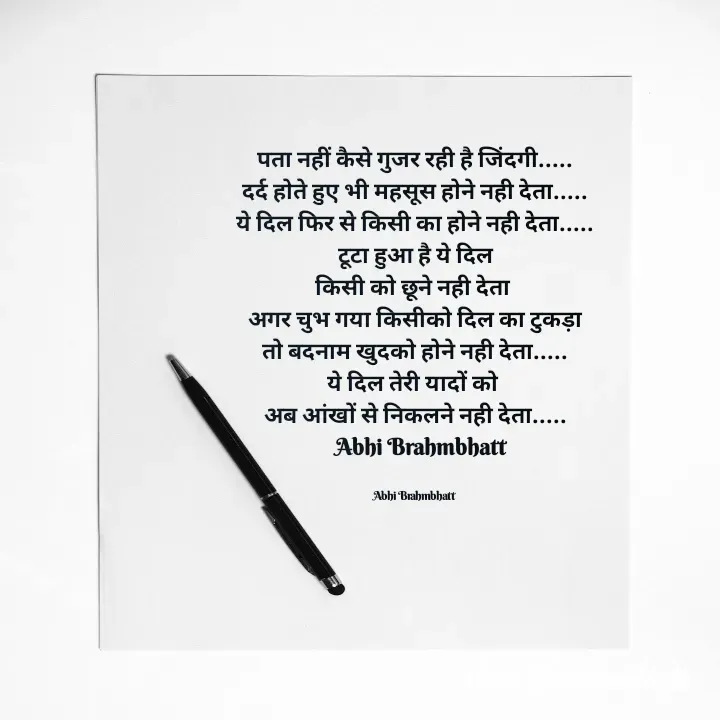 पता नहीं कैसे गुजर रही है जिंदगी.....
दर्द होते हुए भी महसूस होने नही देता.....
ये दिल फिर से किसी का होने नही देता.....
टूटा हुआ है ये दिल
किसी को छूने नही देता
अगर चुभ गया किसीको दिल का टुकड़ा
तो बदनाम खुदको होने नही देता.....
ये दिल तेरी यादों को
अब आंखों से निकलने नही देता.....
Abhi Brahmbhatt
Abhi Brahmbhatt